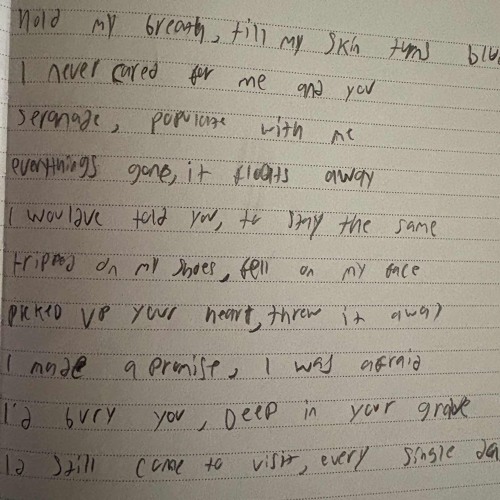 hold my breath, till my skin turns blu
I never cared for me and you
seranade, populate with me
everythings gone, it floats away
I woulave told you, to stay the same
tripped on my shoes, fell on my face
picked up your heart, threw it away
I made a promise, I was afraid
I'd bury you, Deep in your grave
Id still come to visit, every single da